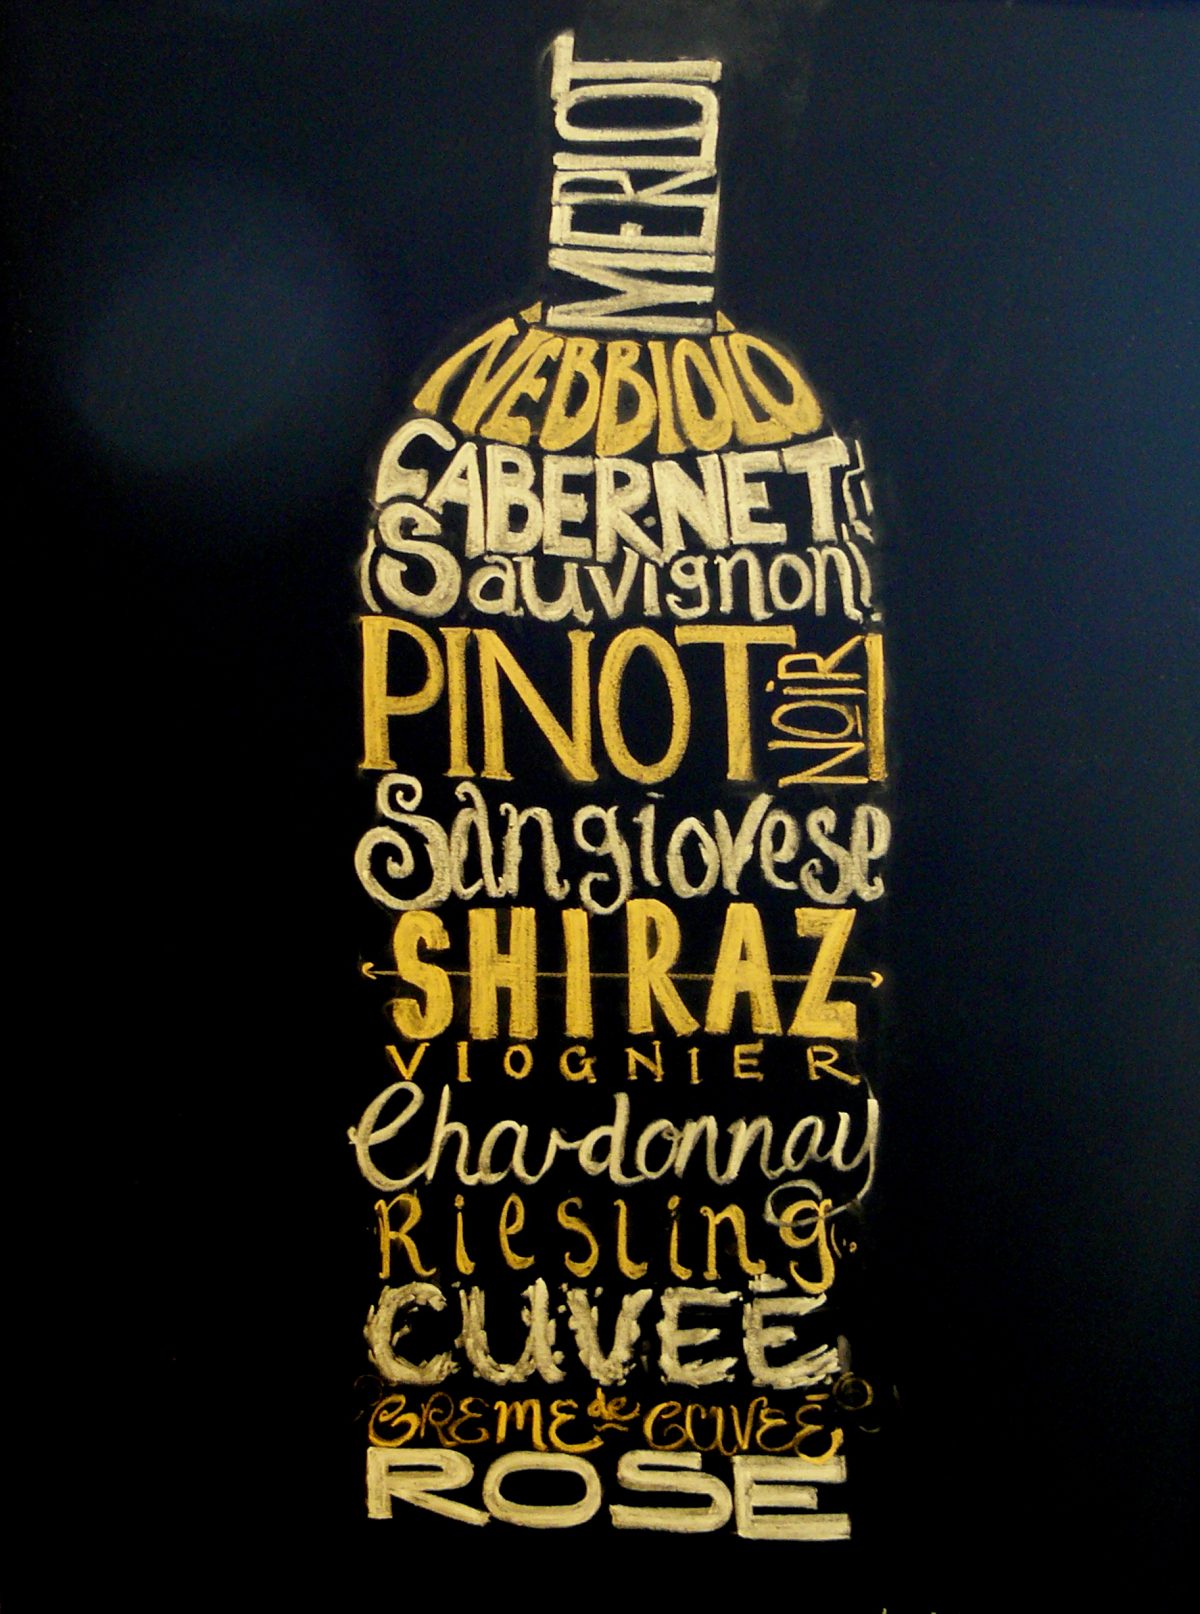 MERLOT
NEBBIOLO
CABERNET
(Sauvignon)
PINOT NOIR
Sangiovese
SHIRAZ
VIOGNIER
Chardonnay
Riesling
CUVEÉ
CREME de CUVEÉ
ROSE